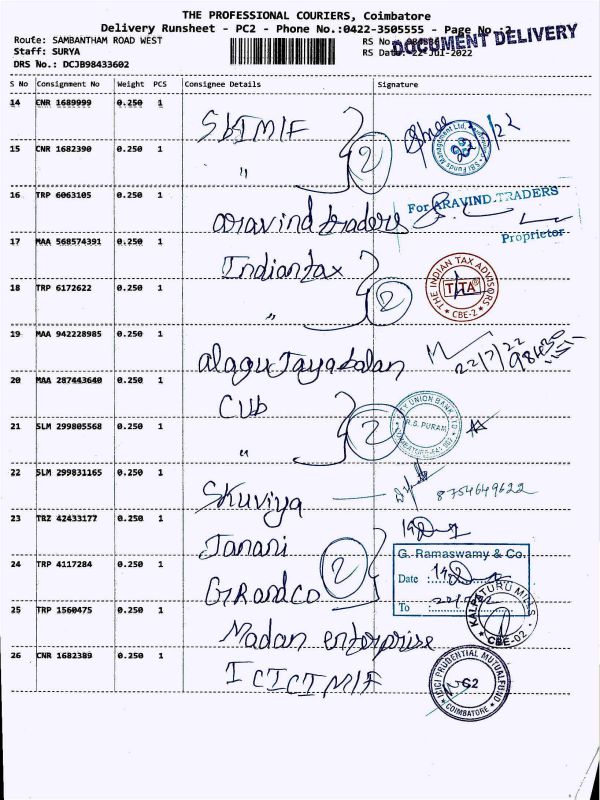 THE PROFESSIONAL COURIERS, Coimbatore
Delivery Runsheet - PC2 - Phone No.:0422-3505555 - Page No.:2
Route: SAMBANTHAM ROAD WEST
RS No.:
DOCUMENT DELIVERY
Staff: SURYA
RS Date: 22-Jul-2022
DRS No.: DCJB98433602
S No Consignment No Weight PCS Consignee Details Signature
14 CNR 1689999 0.250 1 SBIMIF
15 CNR 1682390 0.250 1 "
2
SBI Funds Management Ltd.
22
16 TRP 6063105 0.250 1 aravind traders
For ARAVIND TRADERS
Proprietor
17 MAA 568574391 0.250 1 Indian tax
18 TRP 6172622 0.250 1 "
2
THE INDIAN TAX ADVISORS
TITA
CBE-2
19 MAA 942228985 0.250 1 alagu Jayabalan
22/7/22
98430
20 MAA 287443640 0.250 1 CUB
21 SLM 299805568 0.250 1 "
2
CITY UNION BANK LTD
R.S. PURAM
22 SLM 299831165 0.250 1 Skuviya
8754649622
23 TRZ 42433177 0.250 1 Janani
24 TRP 4117284 0.250 1 GRandCo
2
G. Ramaswamy & Co.
Date :
To :
25 TRP 1560475 0.250 1 Madan enterprise
KALPATURU MILLS
CBE-02
26 CNR 1682389 0.250 1 ICICIMIF
ICICI PRUDENTIAL MUTUAL FUND
G2
COIMBATORE